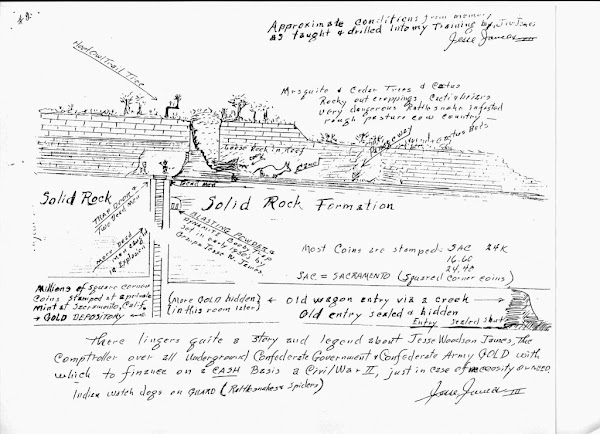 Approximate conditions from memory
as taught & drilled into my Training by, J.W. James
Jesse James III
Hoot Owl Trail Tree
Mesquite & Cedar Trees & Catus
Rocky out croppings, Cacti & briars
Very dangerous Rattlesnake infested
rough pasture cow country —
Loose Rock in Roof
Dead Men
Solid Rock
Solid Rock Formation
Trap Door &
Two Dead Men
BLASTING POWDER &
DYNAMITE Booby trap
set in early 1900s by
Gramps Jesse W. James
More Dead
men caught
in Explosion
Most Coins are stamped: SAC 24K
16.60
24.40
SAC = SACRAMENTO (Squared Corner coins)
Millions of square corner
Coins stamped at a private
Mint at Sacramento, Calif.
→ GOLD DEPOSITORY ←
(More GOLD hidden)
(in this room later)
← old wagon entry via a creek →
Old entry sealed & hidden
Entry Sealed Shut
There lingers quite a story and legend about Jesse Woodson James, The
Comptroller over all Underground Confederate Government & Confederate Army GOLD with
which to finance on a CASH Basis a Civil War II, just in case of necessity or need.
Indian watch dogs on GUARD (Rattlesnakes & Spiders)
Jesse James III